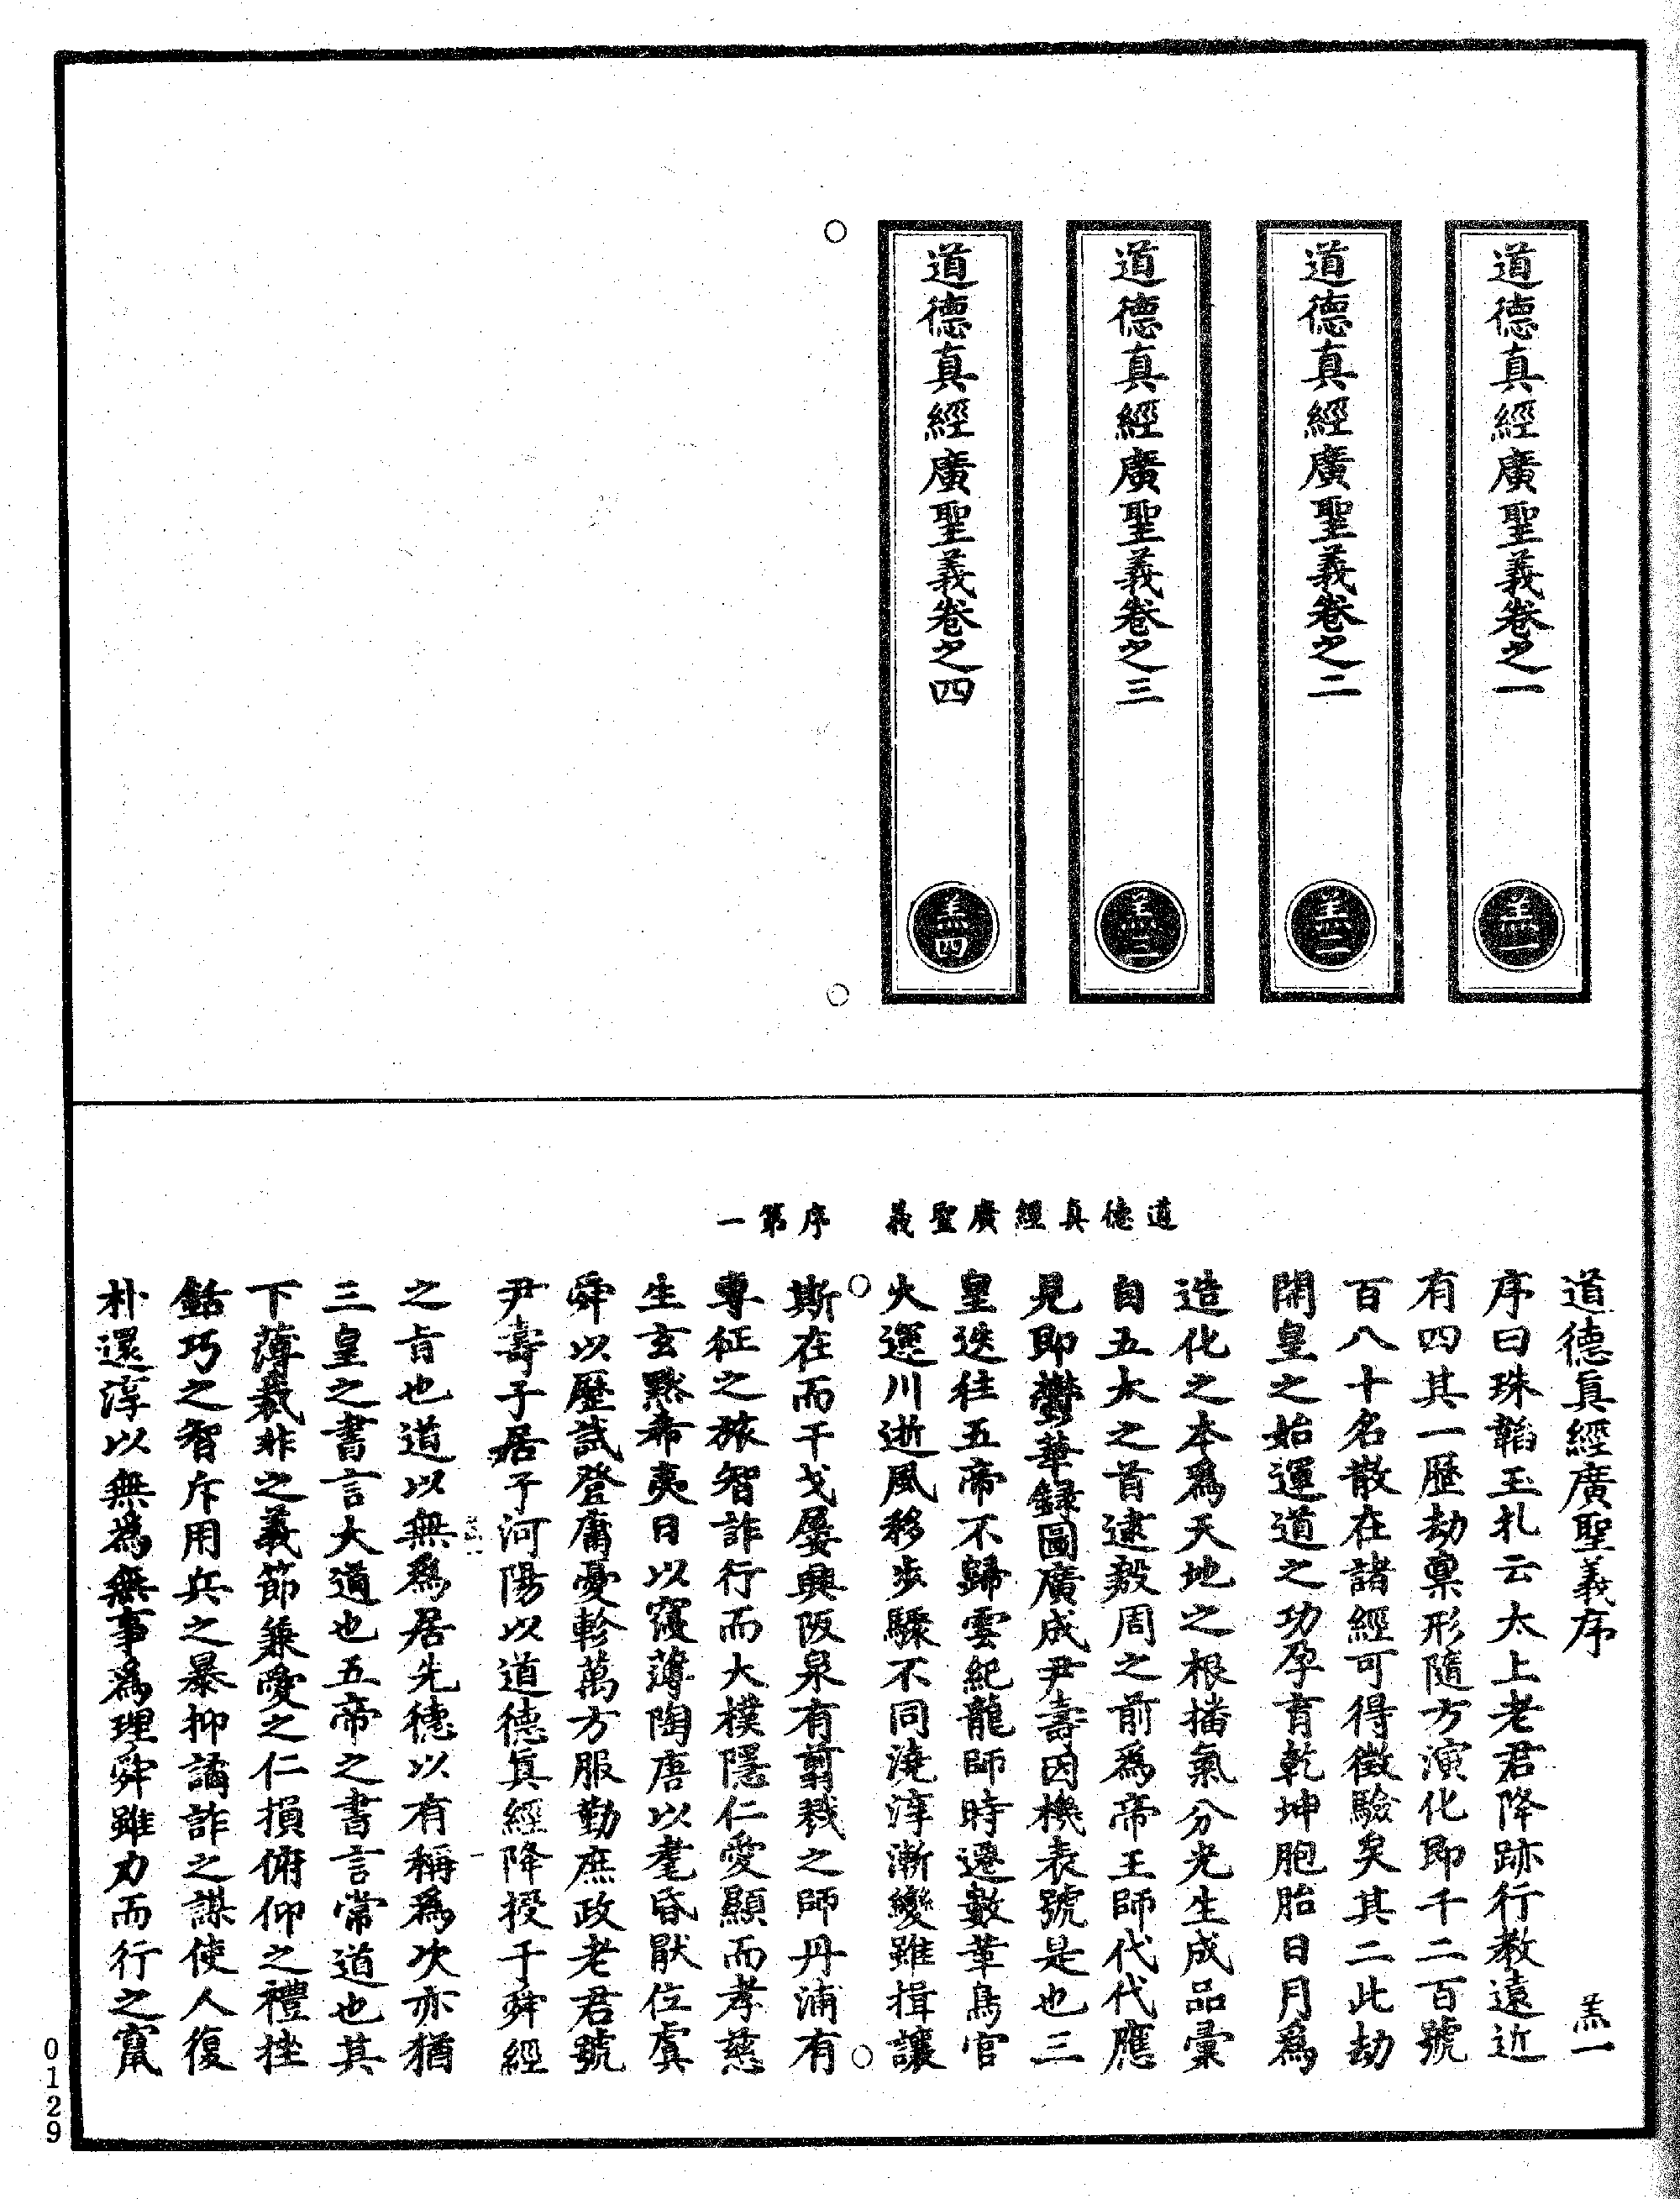 道德真經廣聖義卷之一
羔一
道德真經廣聖義卷之二
羔二
道德真經廣聖義卷之三
羔三
道德真經廣聖義卷之四
羔四
道德真經廣聖義　序第一
道德眞經廣聖義序　羔一
序曰珠韜玉札云太上老君降跡行教遠近
有四其一歷劫稟形隨方演化即千二百號
百八十名散在諸經可得徵驗矣其二此劫
開皇之始運道之功孕育乾坤胞胎日月爲
造化之本爲天地之根播氣分光生成品彙
自五太之首逮殷周之前爲帝王師代代應
見即鬱華錄圖廣成尹壽因機表號是也三
皇迭往五帝不歸雲紀龍師時遷數革鳥官
火運川逝風移步驟不同澆淳漸變雖揖讓
斯在而干戈屢興阪泉有翦戮之師丹浦有
專征之旅智詐行而大樸隱仁愛顯而孝慈
生玄默希夷日以寖薄陶唐以耄昏厭位虞
舜以歷試登庸憂軫萬方服勤庶政老君號
尹壽子居于河陽以道德眞經降授于舜經
之旨也道以無爲居先德以有稱爲次亦猶
三皇之書言大道也五帝之書言常道也其
下薄裁非之義節兼愛之仁損俯仰之禮挫
銛巧之智斥用兵之暴抑譎詐之謀使人復
朴還淳以無為無事爲理舜雖力而行之竄
0129